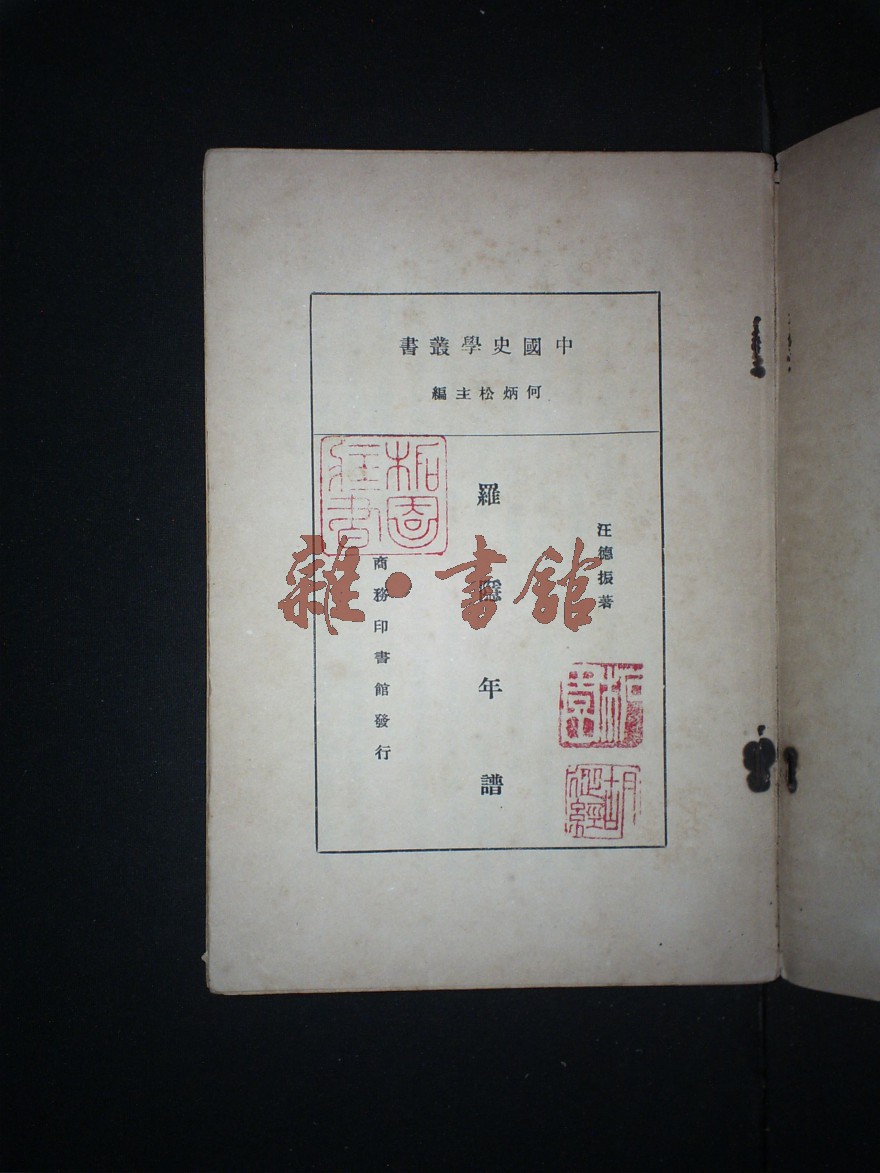 中國史學叢書
何炳松主編
汪德振著
羅隱年譜
商務印書館發行
雜·書館